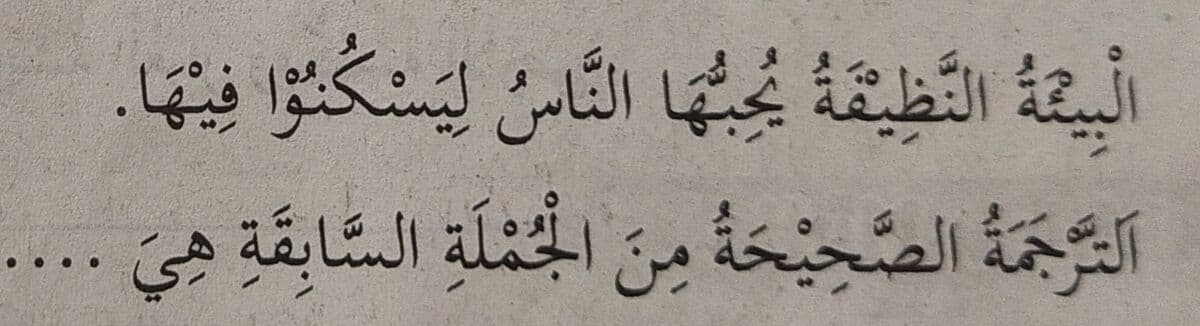 الْبِيْئَةُ النَّظِيْفَةُ يُحِبُّهَا النَّاسُ لِيَسْكُنُوْا فِيْهَا.
اَلتَّرْجَمَةُ الصَّحِيْحَةُ مِنَ الْجُمْلَةِ السَّابِقَةِ هِيَ ....